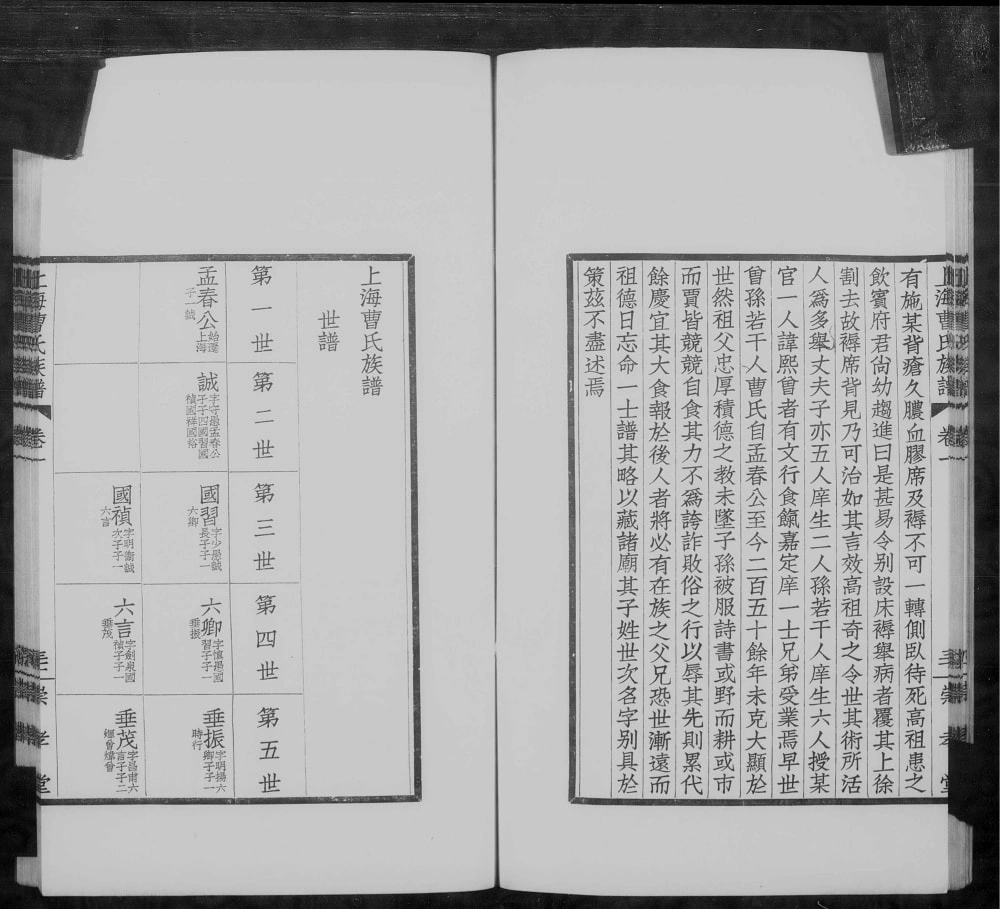 有施某背瘡久膿血膠席及褥不可一轉側臥待死高祖患之
飲賓府君尙幼趨進曰是甚易令别設床褥舉病者覆其上徐
割去故褥席背見乃可治如其言效高祖奇之令世其術所活
人爲多舉丈夫子亦五人庠生二人孫若干人庠生六人授某
官一人諱熙曾者有文行食餼嘉定庠一士兄弟受業焉早世
曾孫若干人曹氏自孟春公至今二百五十餘年未克大顯於
世然祖父忠厚積德之教未墜子孫被服詩書或野而耕或市
而賈皆競競自食其力不爲誇詐敗俗之行以辱其先則累代
餘慶宜其大食報於後人者將必有在族之父兄恐世漸遠而
祖德日忘命一士譜其略以藏諸廟其子姓世次名字别具於
策茲不盡述焉
上海曹氏族譜
卷一
崇孝堂
上海曹氏族譜
世譜
第一世
第二世
第三世
第四世
第五世
孟春公始遷上海
子一誠
誠字守愚孟春公子子四國習國禎國祥國裕
國習字少愚誠長子子一六卿
六卿字慎愚國習子子一垂振
垂振字明揚六卿子子一時行
國禎字明衡誠次子子一六言
六言字劍泉國禎子子一垂茂
垂茂字昌甫六言子子二煇曾煒曾
上海曹氏族譜
卷一
崇孝堂